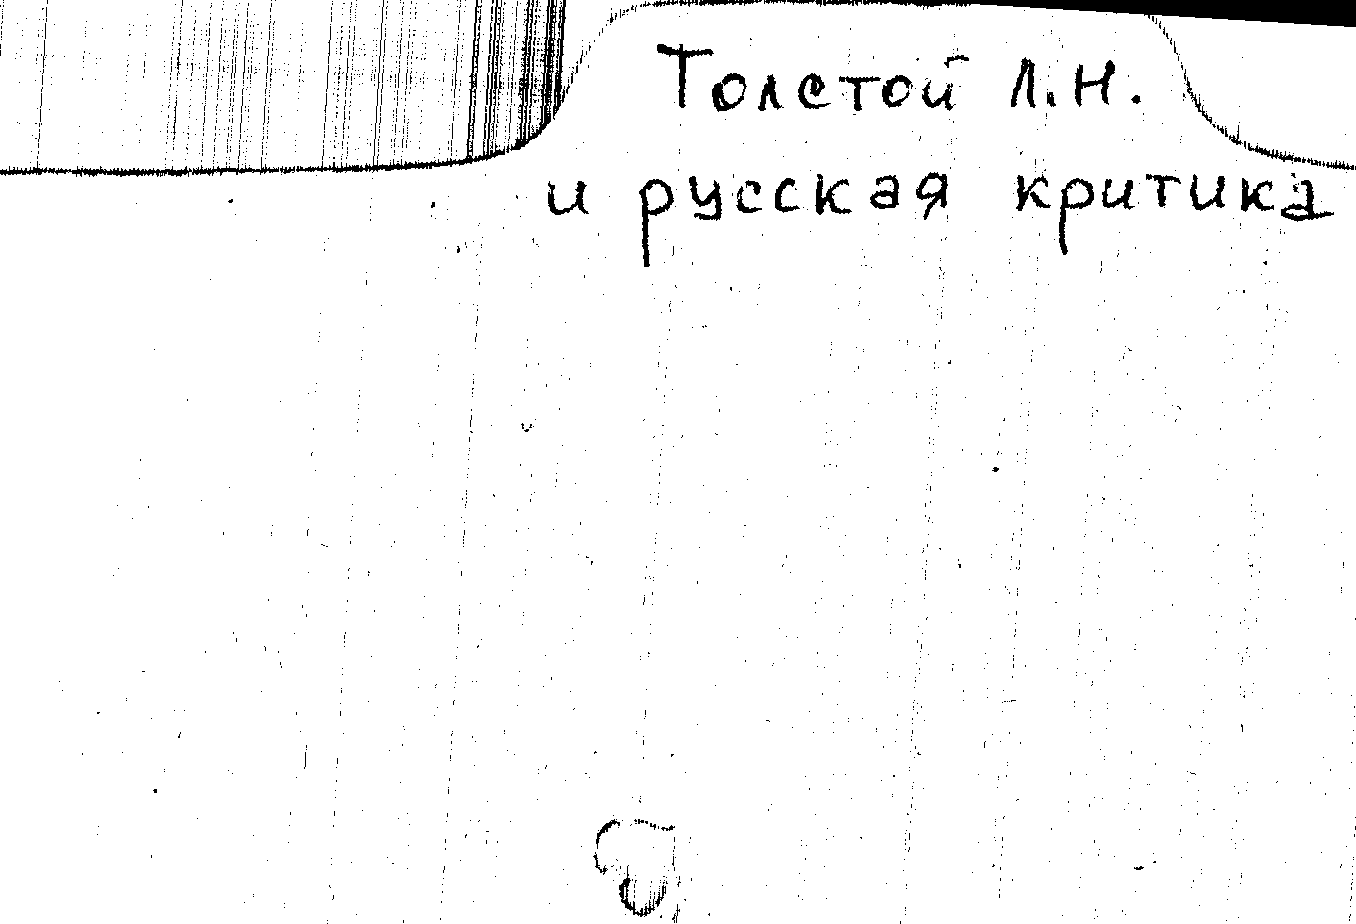 Толстой Л.Н.
и русская критика